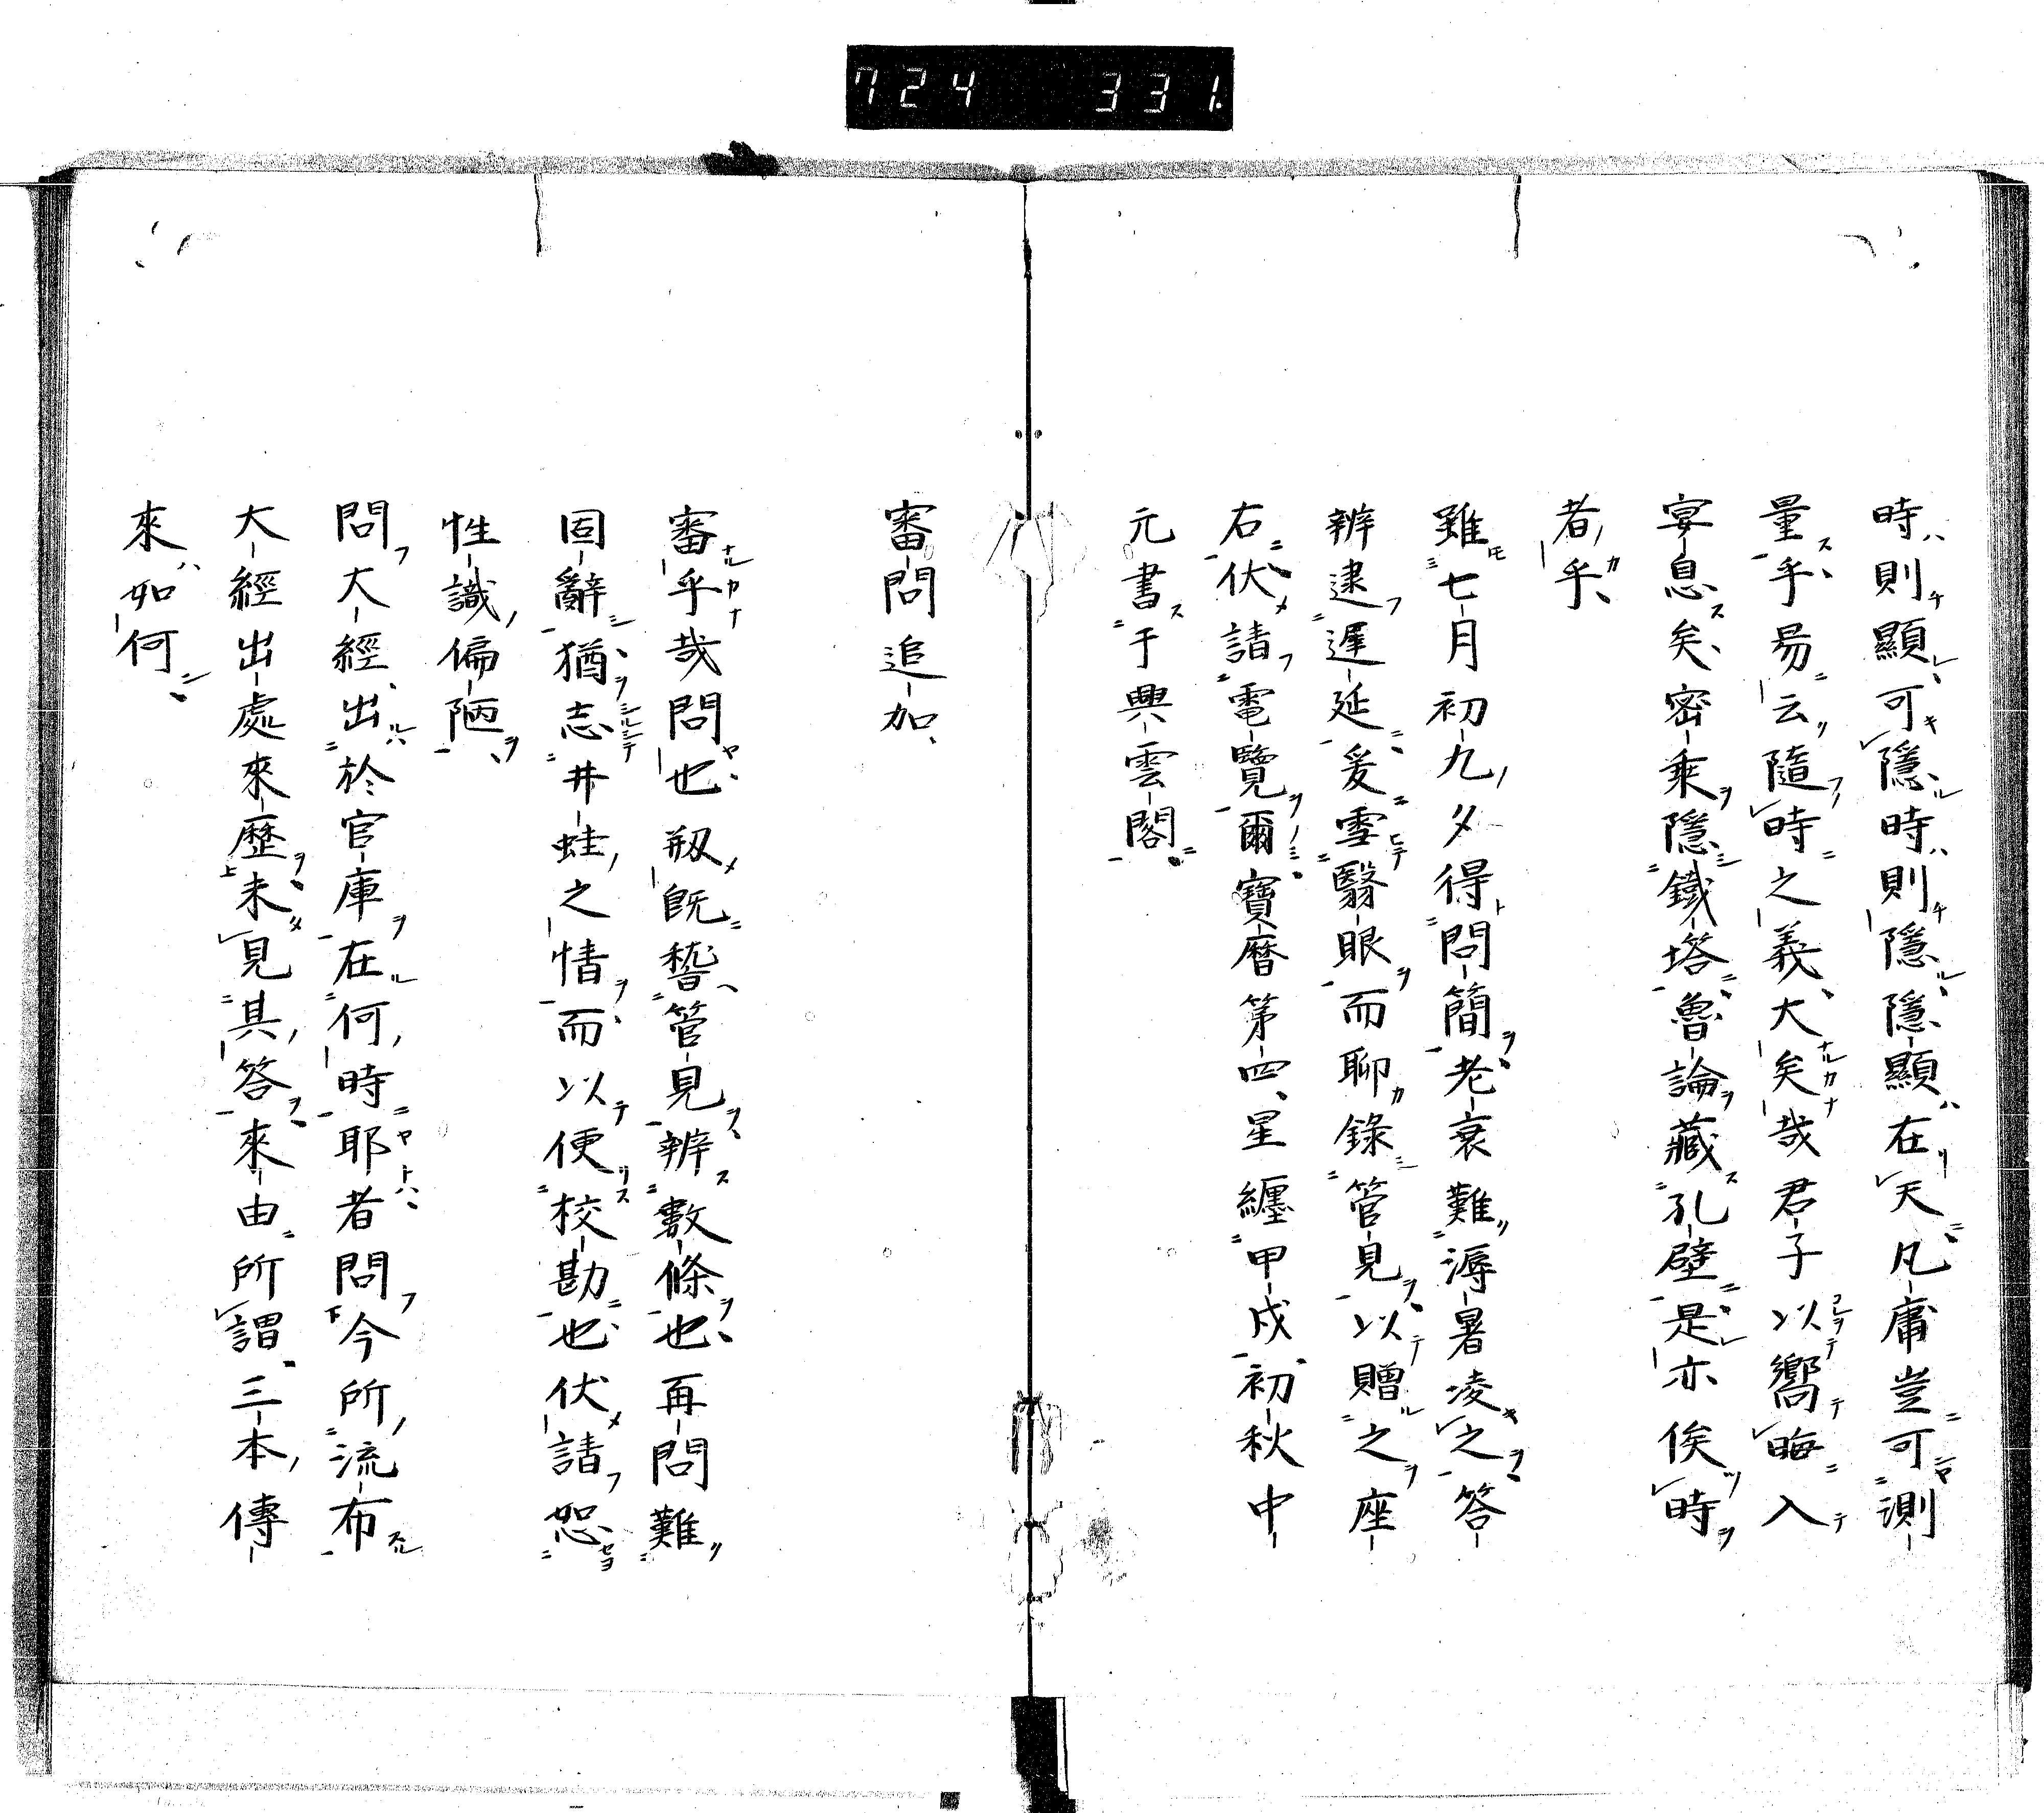 724 331.
時則顯可隱時則隱隱顯在天凡庸豈可測
量乎易云隨時之義大矣哉君子以嚮晦入
宴息矣密乘隱鐵塔魯論藏孔壁是亦俟時
者乎
雖七月初九夕得問簡老衰難溽暑凌之答
辨逮遲延爰雲翳眼而聊錄管見以贈之座
右伏請電覽爾寶曆第四星纏甲戌初秋中
元書于興雲閣
審問追加
審乎哉問也 既 管見辨數條也再問難
固辭猶志井蛙之情而以便校勘也伏請恕
性識偏陋
問大經出於官庫在何時耶者問今所流布
大經出處來歷未見其答來由所謂三本傳
來如何